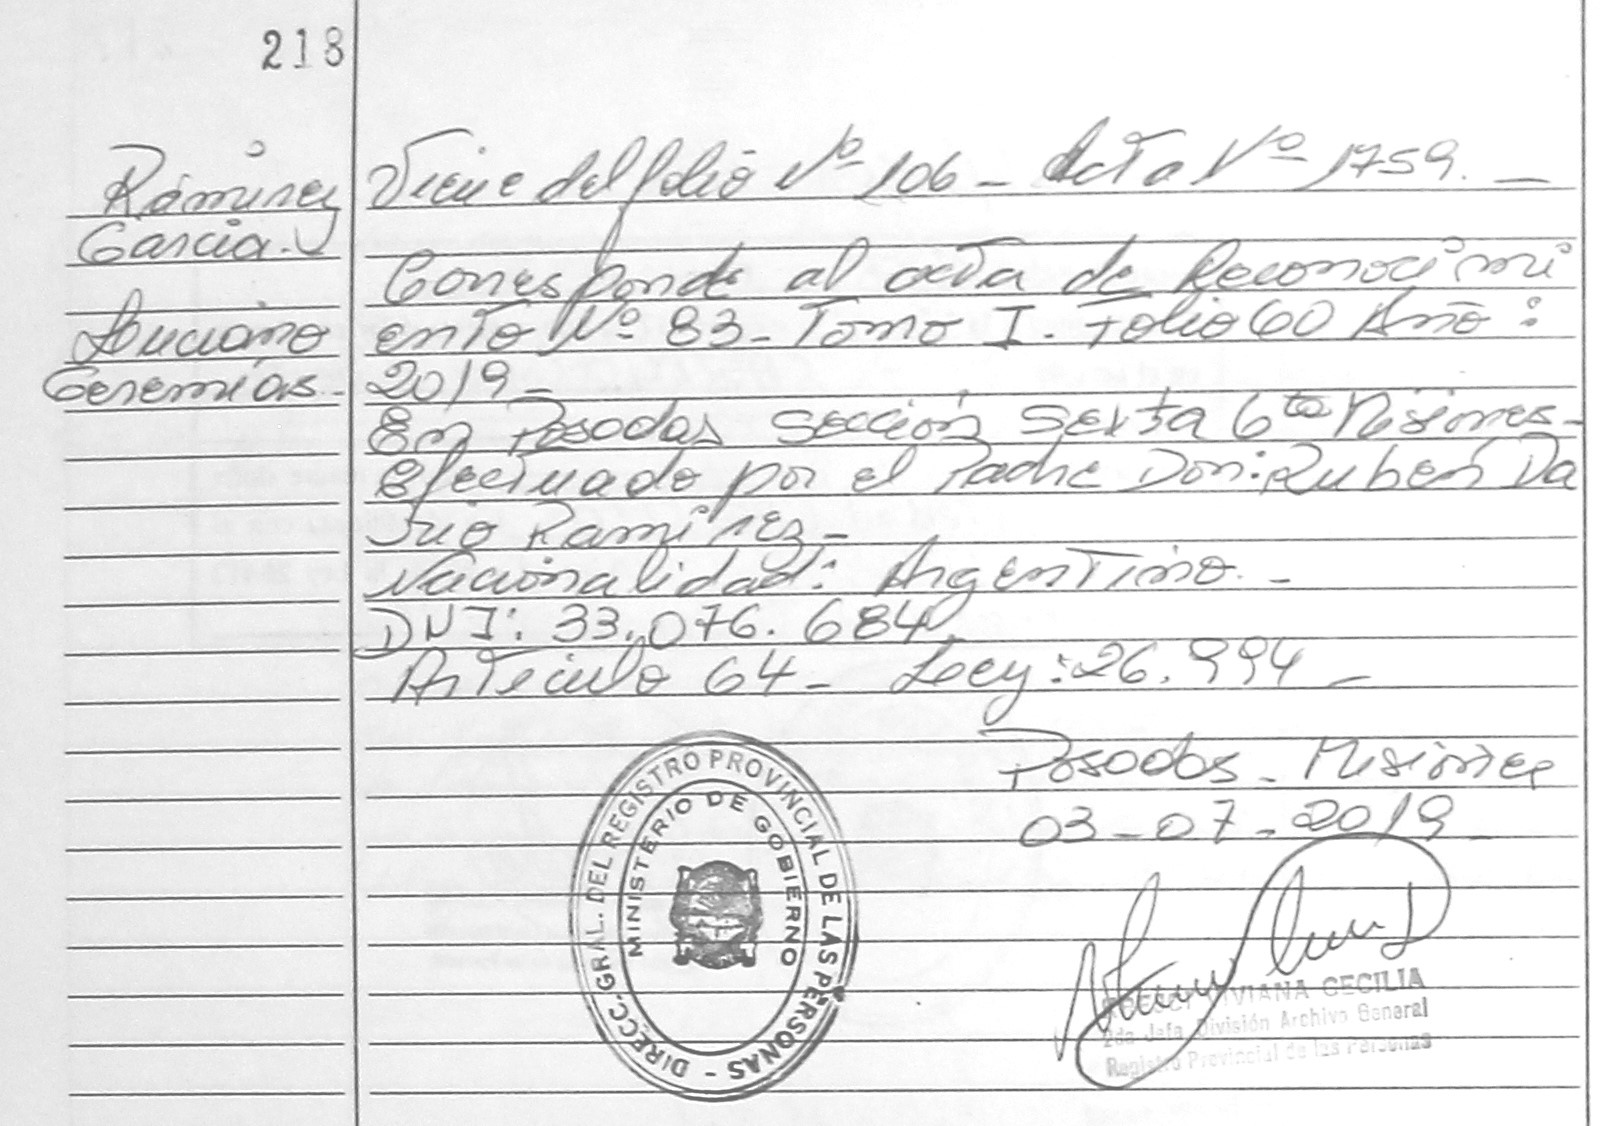 218
Ramirez
Garcia.
Luciano
Geremías.
Viene del folio Nº 106 - Acta Nº 1759. -
Corresponde al acta de Reconocimi
ento Nº 83 - Tomo I. Folio 60 Año:
2019 -
En Posadas Sección Sexta 6ta Misiones -
Efectuado por el Padre Don: Rubén Da
rio Ramírez -
Nacionalidad: Argentino. -
DNI: 33.076.684.
Articulo 64 - Ley: 26.994 -
Posadas - Misiones
03 - 07 - 2019 -
DIRECC. GRAL. DEL REGISTRO PROVINCIAL DE LAS PERSONAS -
MINISTERIO DE GOBIERNO
VIVIANA CECILIA
2da Jefa División Archivo General
Registro Provincial de las Personas